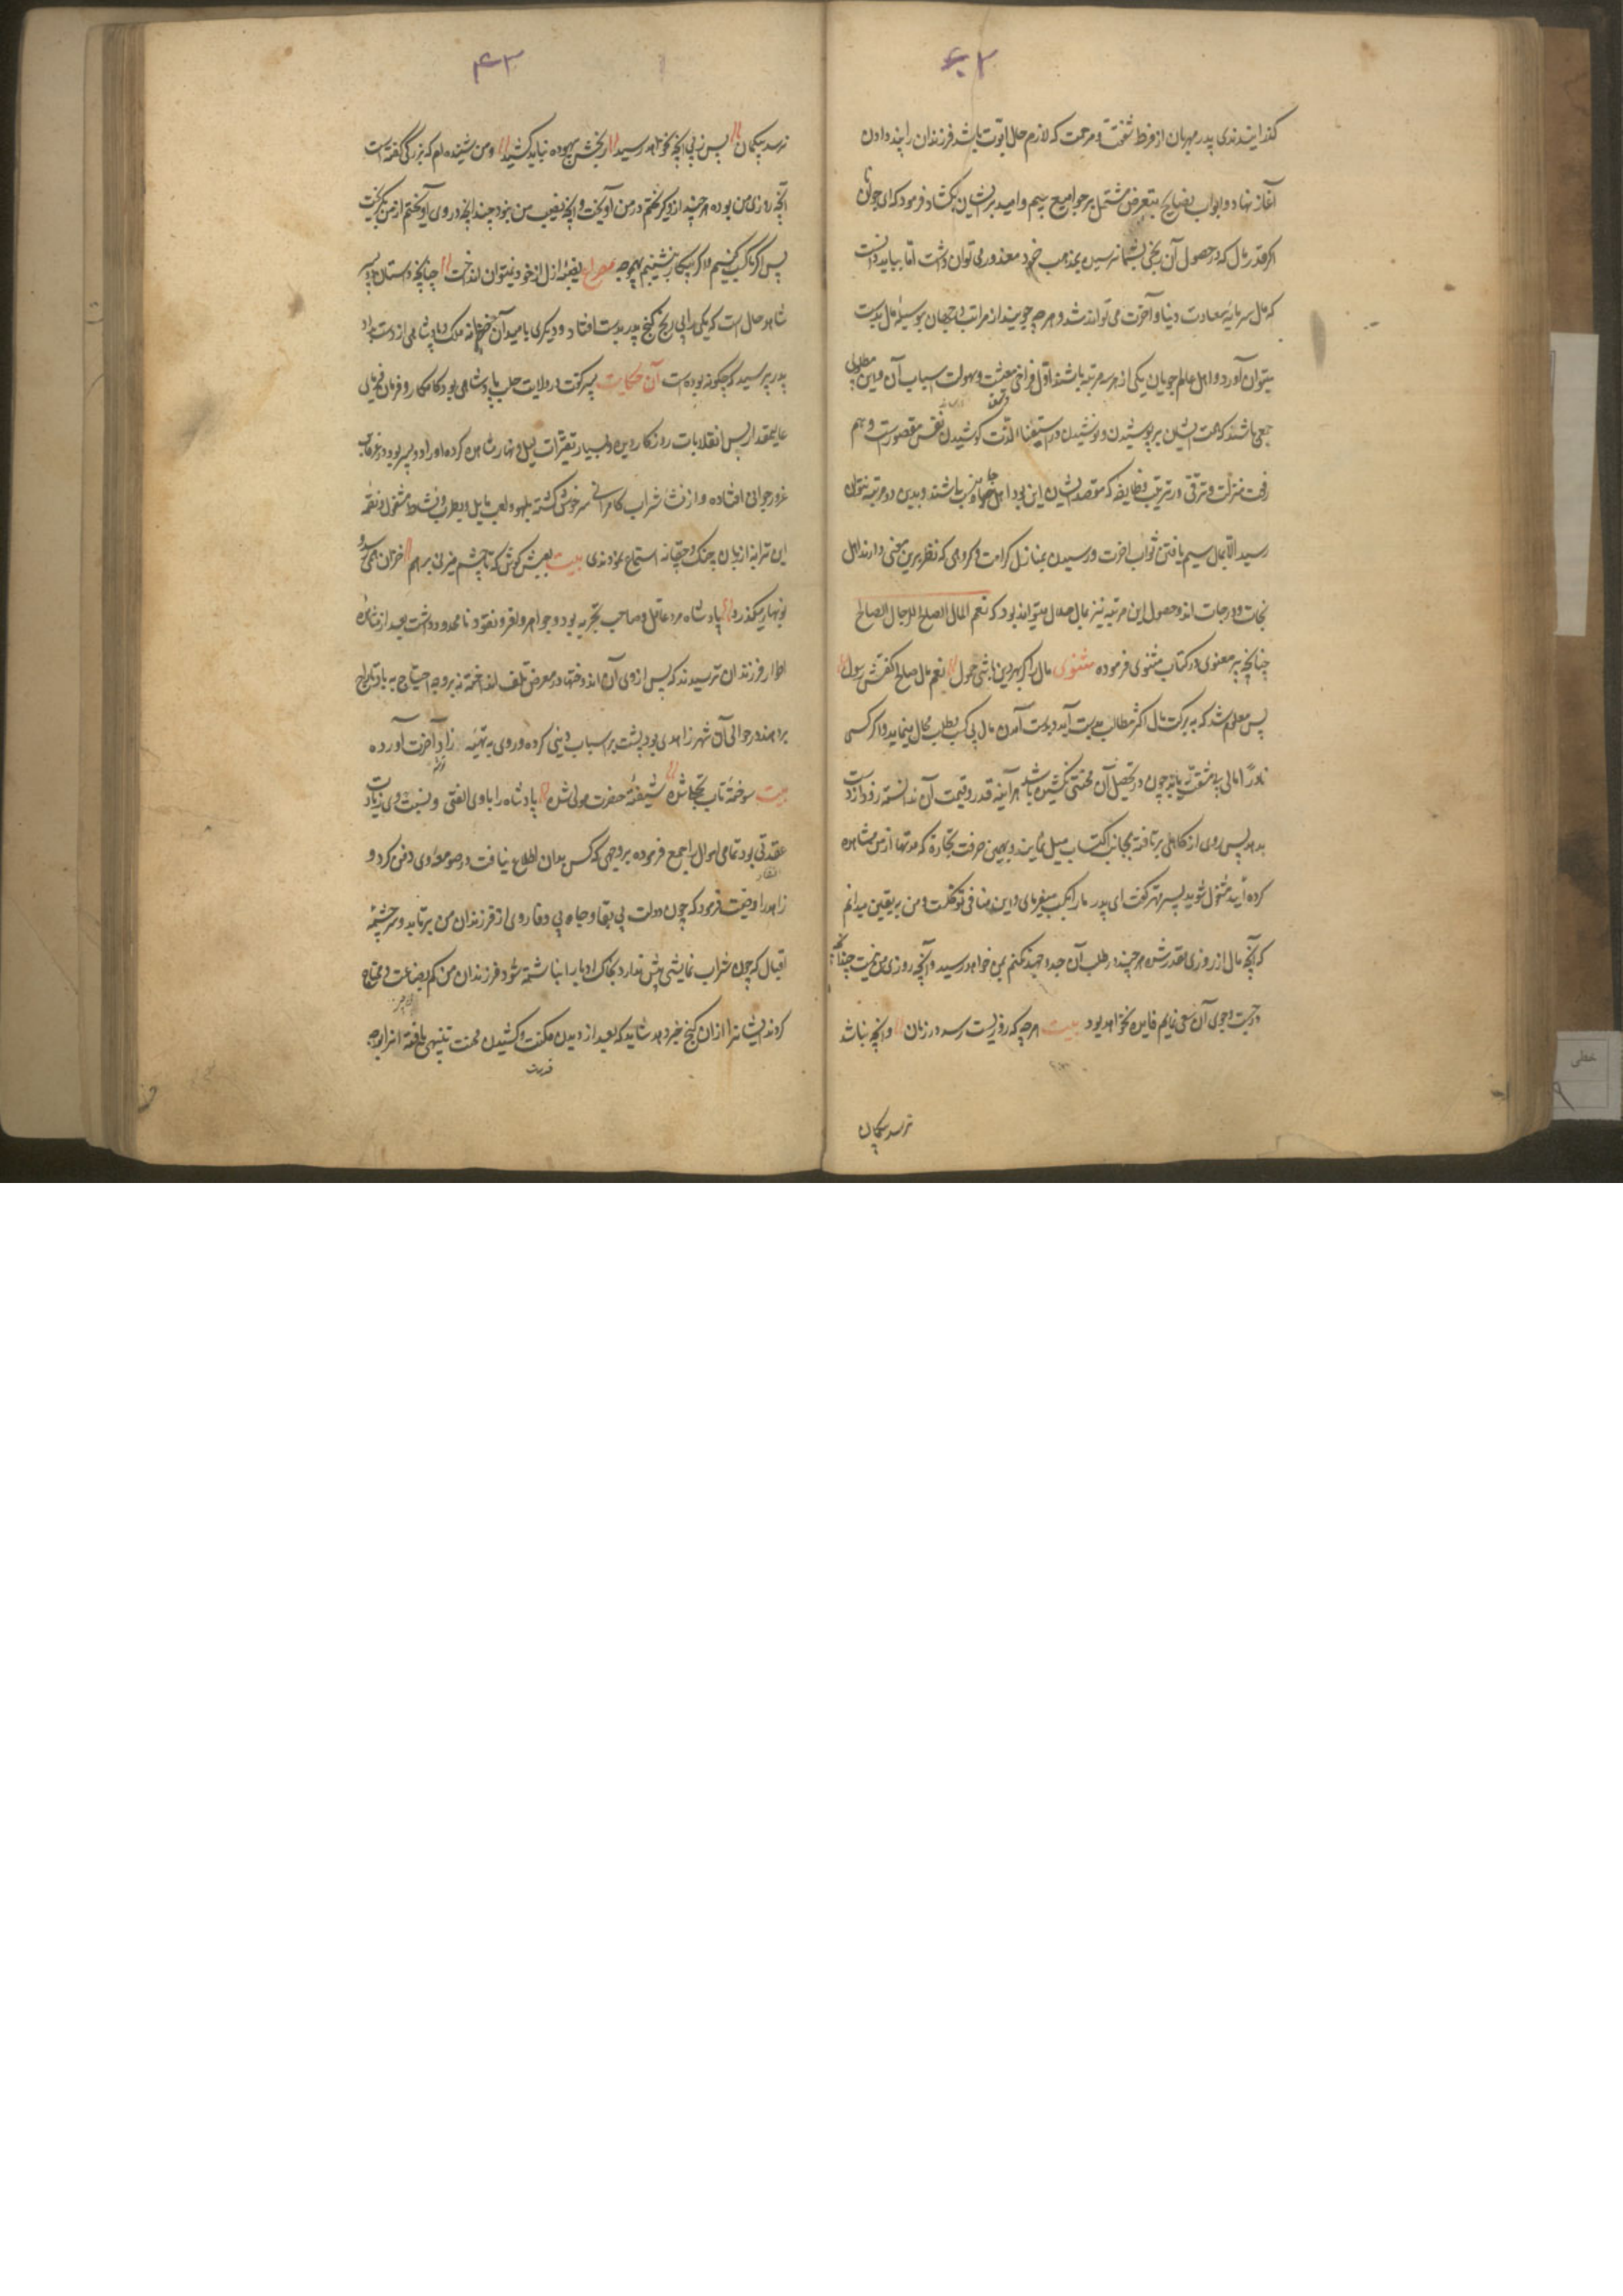 کذرانیدندی پدر مهربان از فرط شفقت و مرحمت که لازم حال ابوت باشد فرزندان را پند دادن
آغاز نهاد و ابواب نصایح بتعرض مشتمل بر جوامع بیم و امید بریشان بکشاد و فرمود که ای جوانان
اکر قدر مال که در حصول آن رنجی بشما نرسیده بمذهب خرد معذور می توان داشت اما بباید دانست
که مال سرمایهٔ سعادت دنیا و آخرت می تواند شد و هر چه جویند از مراتب دو جهان بوسیلهٔ مال بدست
میتوان آورد و اهل عالم جویان یکی از سه مرتبه باشند اول فراخی معیشت و سهولت اسباب آن و این مطلوب
جمعی باشد که همت ایشان بر پوشیدن و نوشیدن و در استیفاء لذت کوشیدن نفس مقصورست دویم
رفعت منزلت و ترقی در مرتبه و طایفه که مقصد ایشان این بود اهل جاه و منصب باشند و بدین دو مرتبه نتوان
رسید الا بمال سیم یافتن ثواب اخرت و رسیدن بمنازل کرامت و کروهی که نظر برین معنی دارند اهل
نجات و درجات اند و حصول این مرتبه نیز بمال حلال میتواند بود که نعم المال الصالح للرجال الصالح
چنانچه پیر معنوی در کتاب مثنوی فرموده مثنوی مال را کز بهر دین باشی حمول نعم مال صالح کفتش رسول
پس معلوم شد که به برکت مال اکثر مطالب بدست آید و بدست آمدن مال بی کسب و طلب محال مینماید و اکر کسی
نادرًا مالی بی مشقت یابد چون در تحصیل آن محنتی نکشیده باشد هر آینه قدر و قیمت آن ندانسته زود از دست
بدهد پس روی از کاهلی برتافته بجانب اکتساب میل نمایند و بهمین حرفت تجارة که مدتها از من مشاهده
کرده اید مشغول شوید پسر مهتر کفت ای پدر ما را کسب میفرمای و این منافی توکلست و من به یقین میدانم
که آنچه مال از روزی مقدر شده هر چند در طلب آن جد و جهد نکنم بمن خواهد رسید و آنچه روزی من نیست چندانکه
در جست و جوی آن سعی نمایم فایده نخواهد بود بیت هر چه که روزیست رسد در زمان وانچه نباشد
نرسد بیکمان
۴۳
نرسد بیکمان پس ز پی انچه نخواهد رسید رنجش بیهوده نباید کشید و من شنیده ام که بزرکی کفته است
آنچه روزی من بوده هر چند از و کریختم در من آویخت و انچه نصیب من نبود چندانچه در وی آویختم از من بکریخت
پس اکر کسب کنیم و اکر بیکار نشینیم بهیچ وجه مصراع نصیبه ازل از خود نمیتوان انداخت چنانچه داستان دو پسر
شاهد حال است که یکی را بی رنج کنج پدر بدست افتاد و دیکری بامید آن خزانه ملک و پادشاهی از دست داد
پدر پرسید که چکونه بوده است آن حکایت پسر کفت در ولایت حلب پادشاهی بود کامکار و فرمان فرمای
عالیمقدار بس انقلابات روزکار دیده و بسیار تغیرات لیل و نهار مشاهده کرده او را دو پسر بود در غرقاب
غرور جوانی افتاده و از نشاء شراب کامرانی سرخوش کشته بلهو و لعب مایل و بطرب و نشاط مشغول و نغمه
این ترانه از زبان چنک و چغانه استماع نمودندی بیت بعیش کوش که تا چشم میزنی برهم خزان همی رسد و
نوبهار میکذرد پادشاه مرد عاقل و صاحب تجربه بود و جواهر وافر و نقود نامحدود داشت بعد از مشاهده
اطوار فرزندان ترسید که پس از وی آن اندوختها در معرض تلف انداخته به باد تاراج
بردهند در حوالی آن شهر زاهدی بود پشت بر اسباب دنیی کرده و روی به تهیّه زاد آخرت آورده
بیت سوختهٔ تاب تجلا شده شیفتهٔ حضرت مولی شده پادشاه را با وی الفتی و نسبت بوی زیادت
عقدتی بود تمامی اموال را جمع فرموده بر وجهی که کس بدان اطلاع نیافت در صومعهٔ وی دفن کرد و
زاهد را وصیت فرمود که چون دولت بی بقا و جاه بی وفا روی از فرزندان من برتابد و سرچشمهٔ
اقبال که چون سراب نمایشی بیش ندارد بخاک ادبار انباشته شود فرزندان من کم بضاعت و محتاج
کردند ایشانرا از ان کنج خبر دهد شاید که بعد از دیدن مکنت و کشیدن محنت تنبیهی یافته انرا بوجه